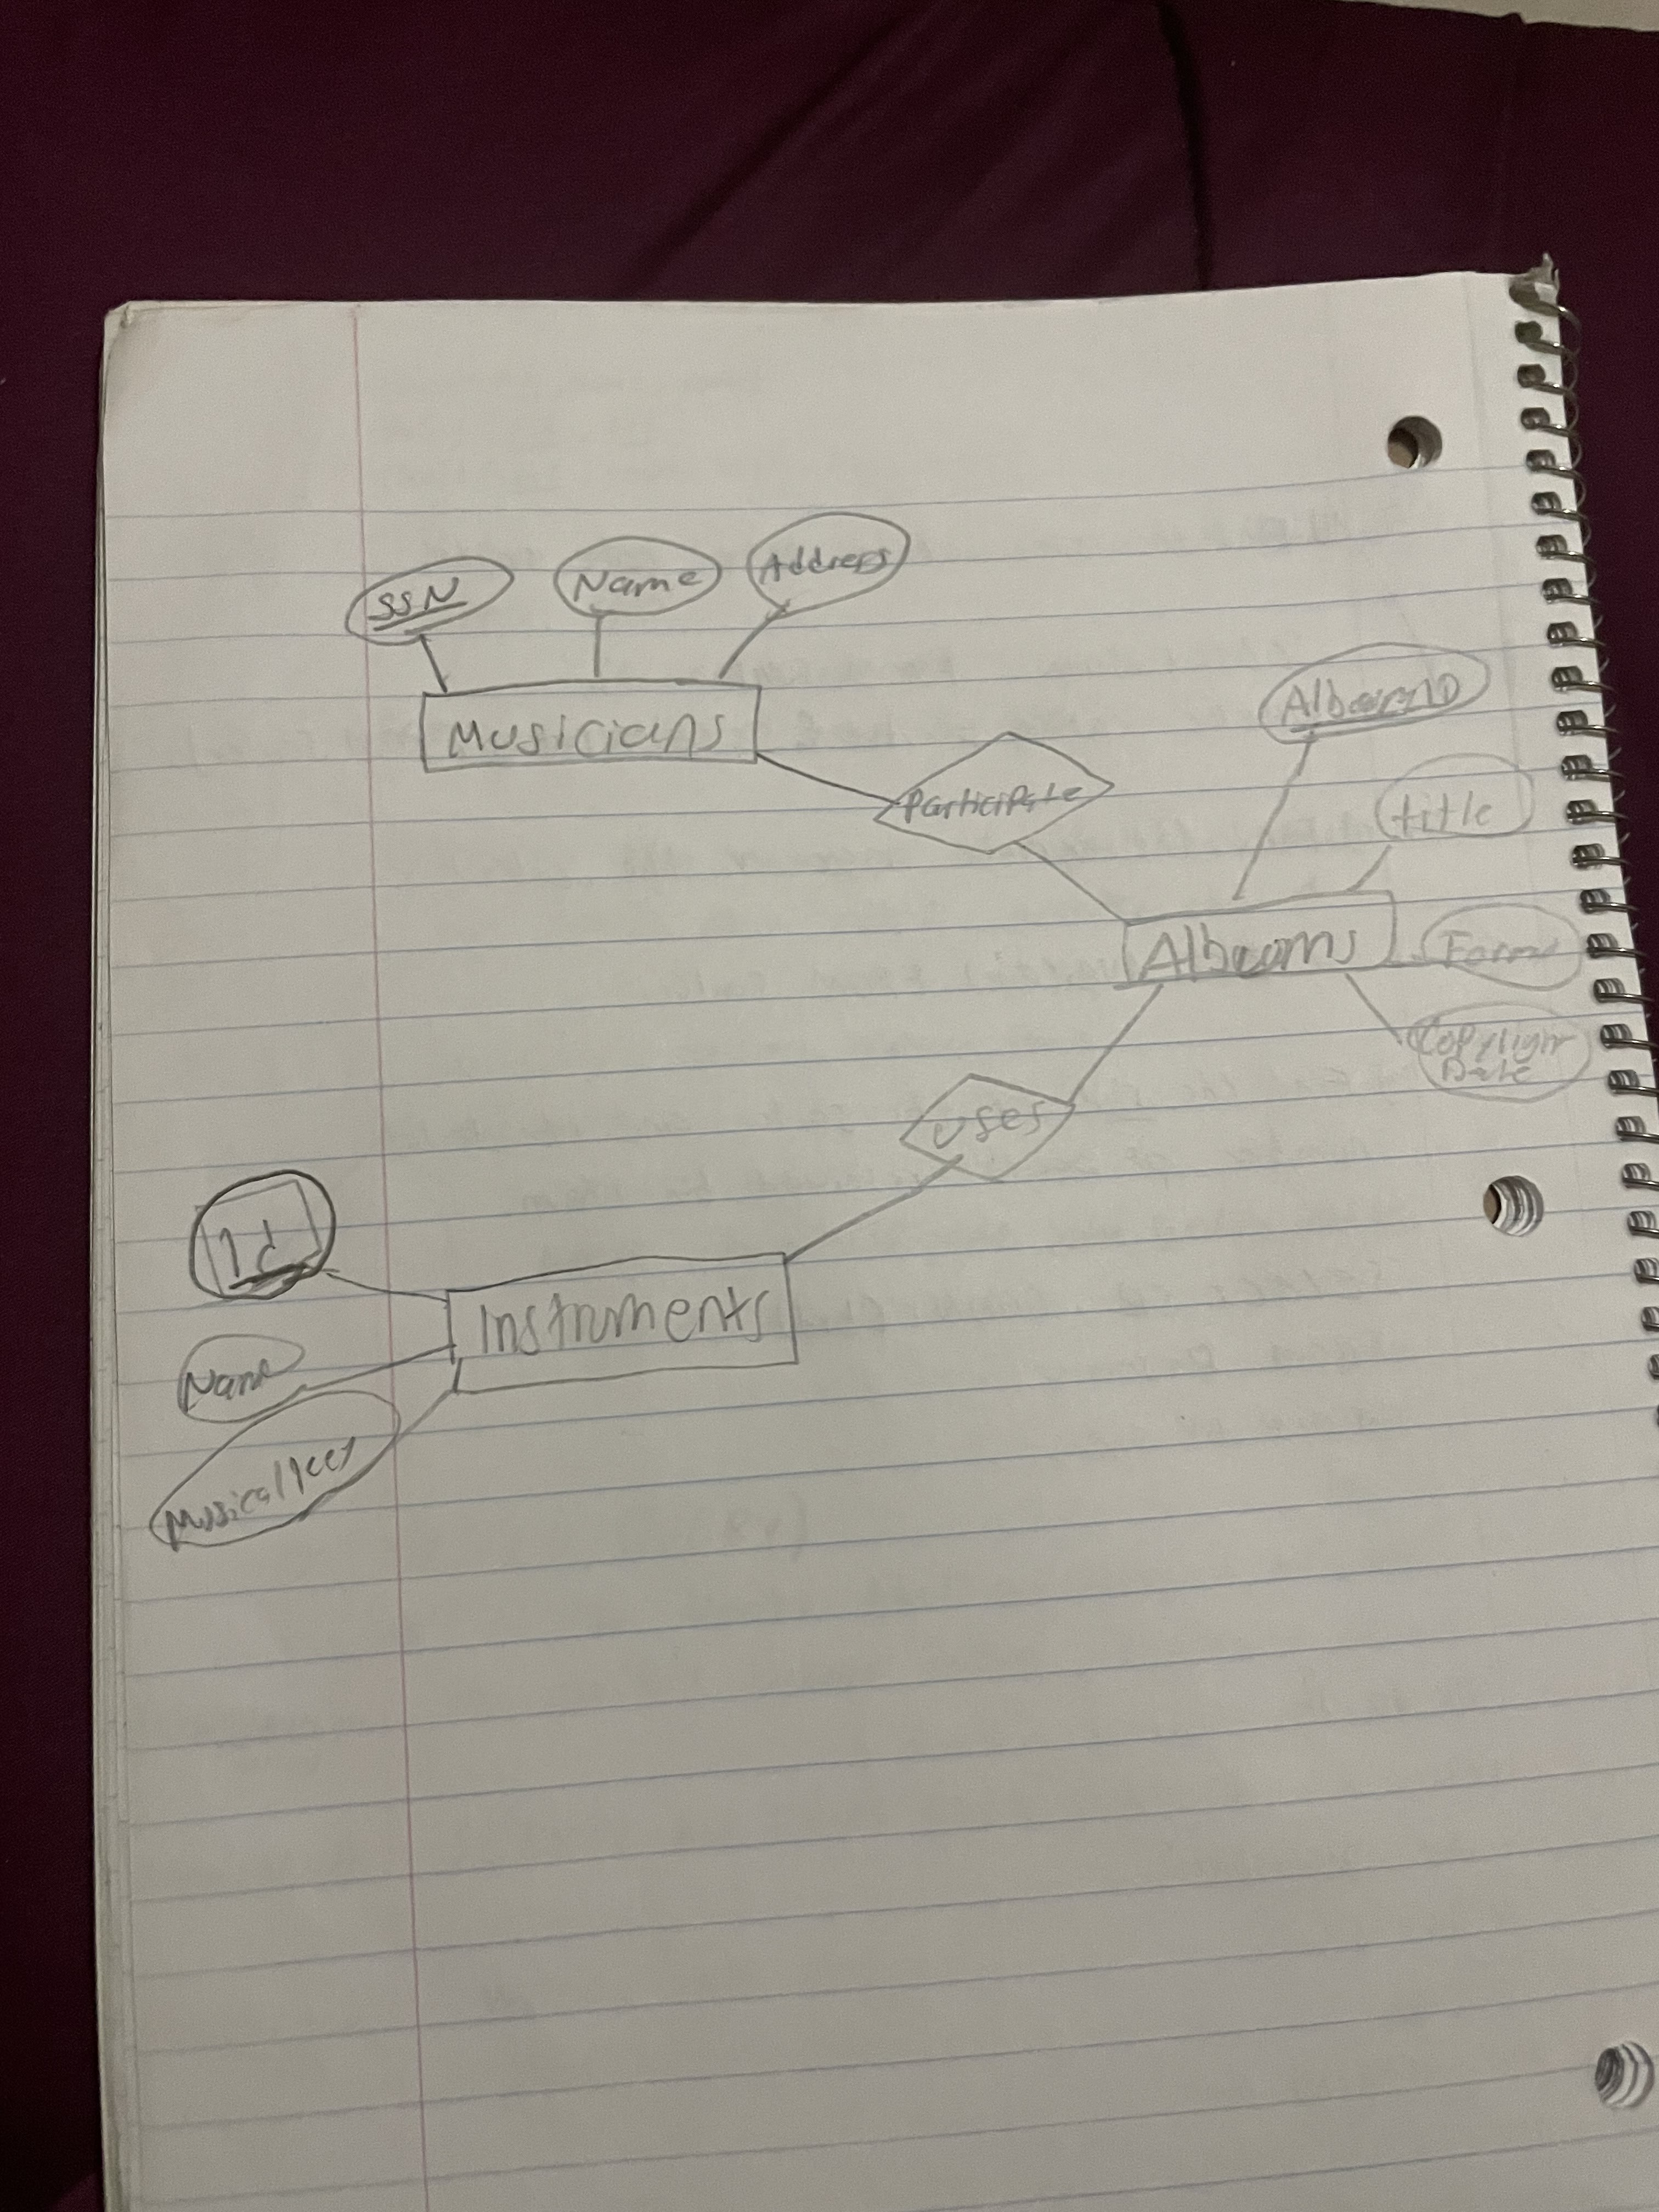 SSN
Name
Address
Musicians
Participate
AlbumID
title
Albums
Copyright
Date
uses
Id
Instruments
Name
Musical key